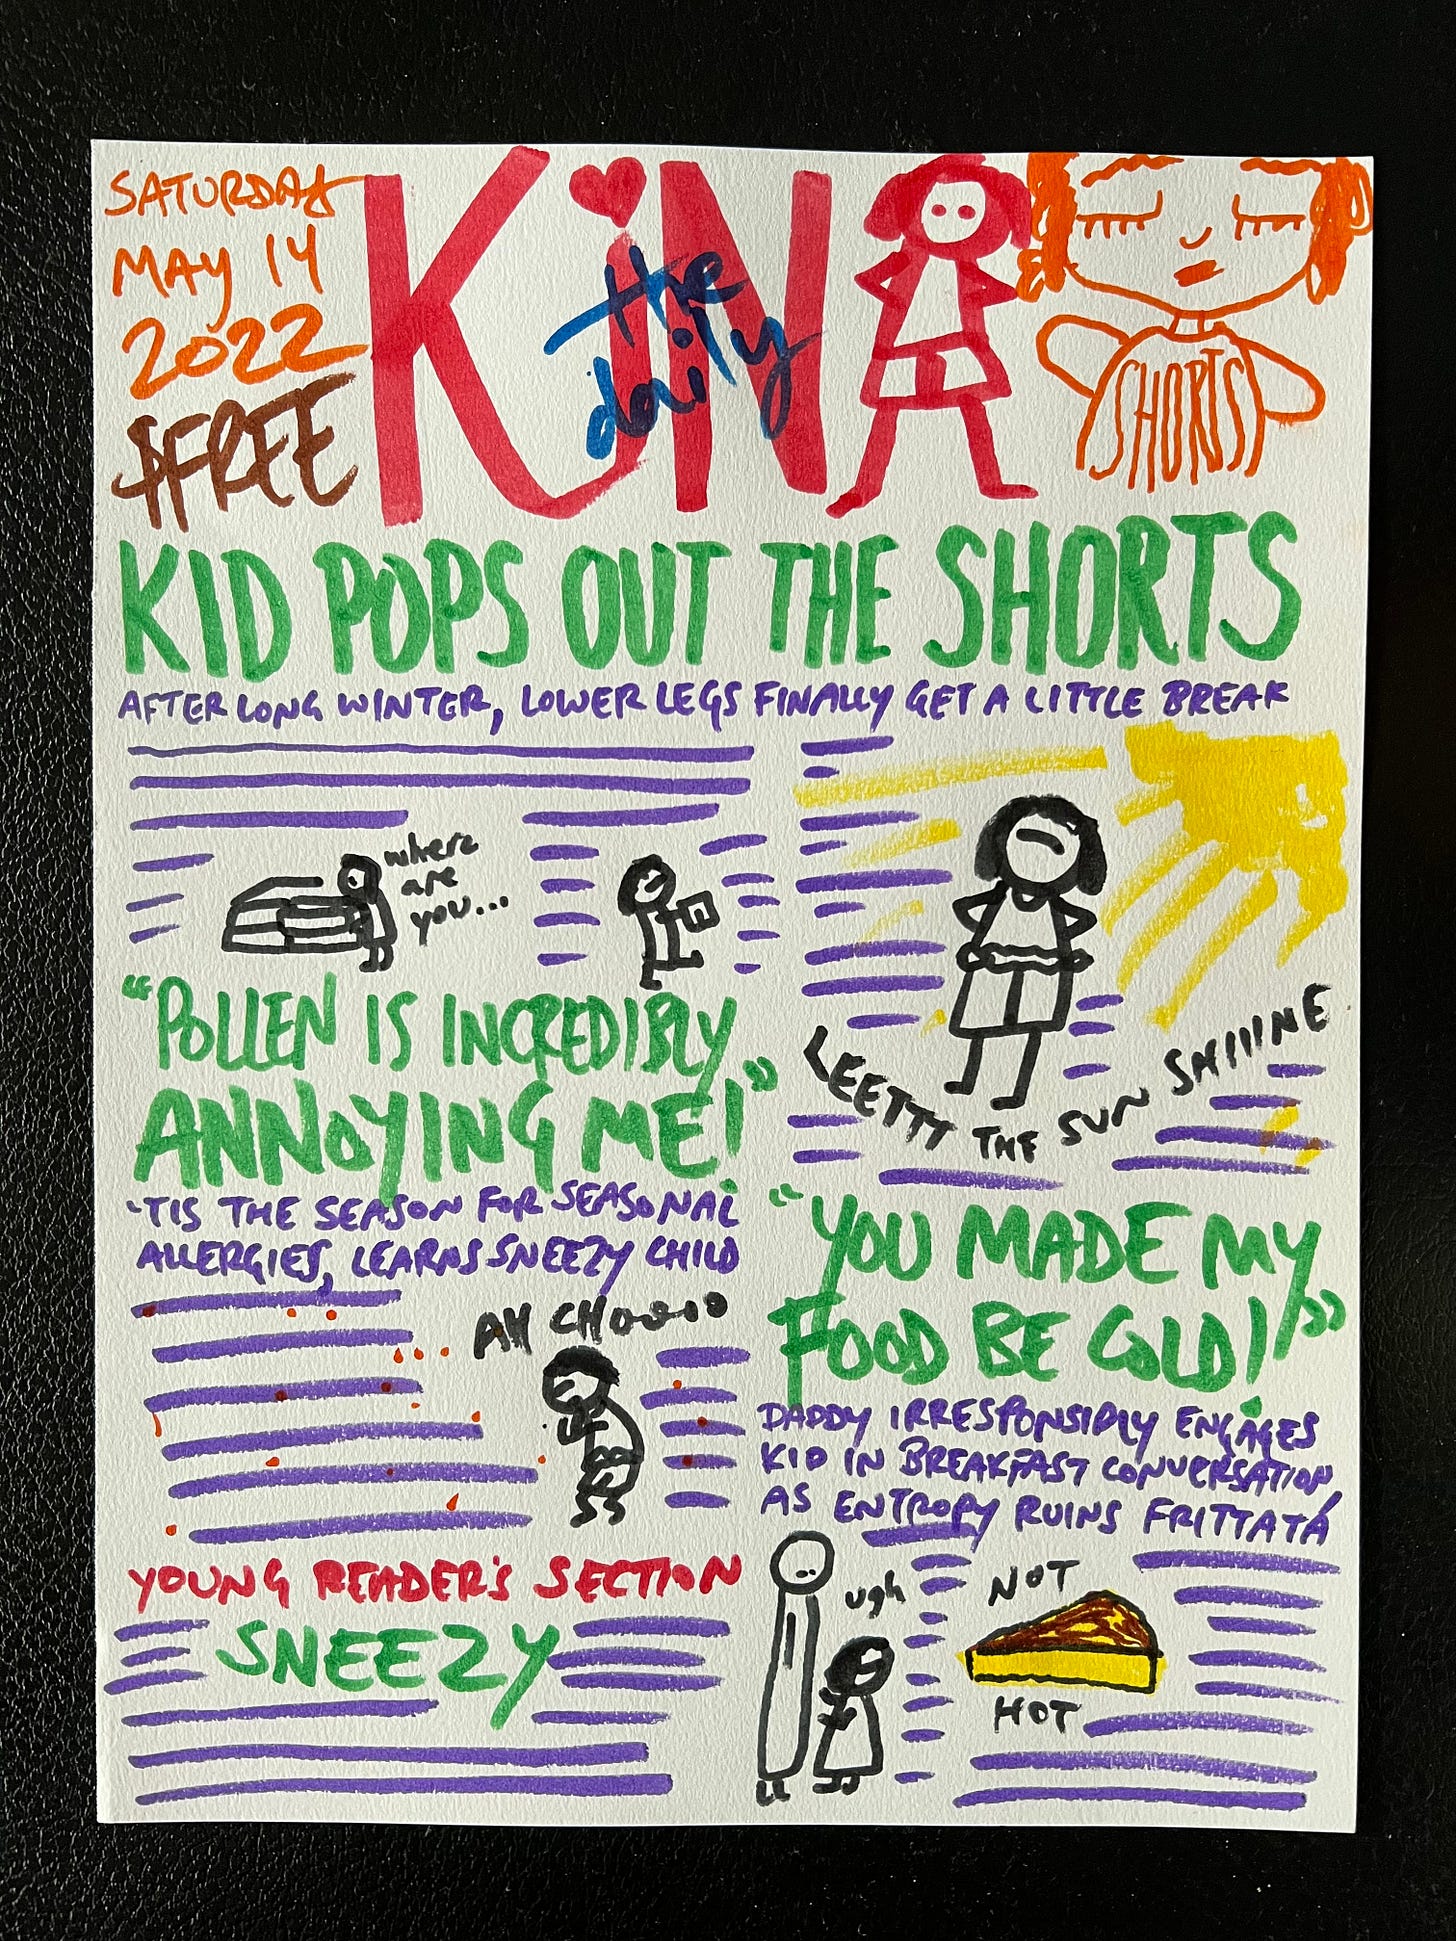 SATURDAY
MAY 14
2022
$FREE
the
daily
KiNA
SHORTS
KID POPS OUT THE SHORTS
AFTER LONG WINTER, LOWER LEGS FINALLY GET A LITTLE BREAK
where
are
you...
LEETTT THE SUN SHIIINE
"POLLEN IS INCREDIBLY
ANNOYING ME!"
'TIS THE SEASON FOR SEASONAL
ALLERGIES, LEARNS SNEEZY CHILD
AH CHOOOO
YOUNG READER'S SECTION
SNEEZY
"YOU MADE MY
FOOD BE COLD!"
DADDY IRRESPONSIBLY ENGAGES
KID IN BREAKFAST CONVERSATION,
AS ENTROPY RUINS FRITTATA
ugh
NOT
HOT